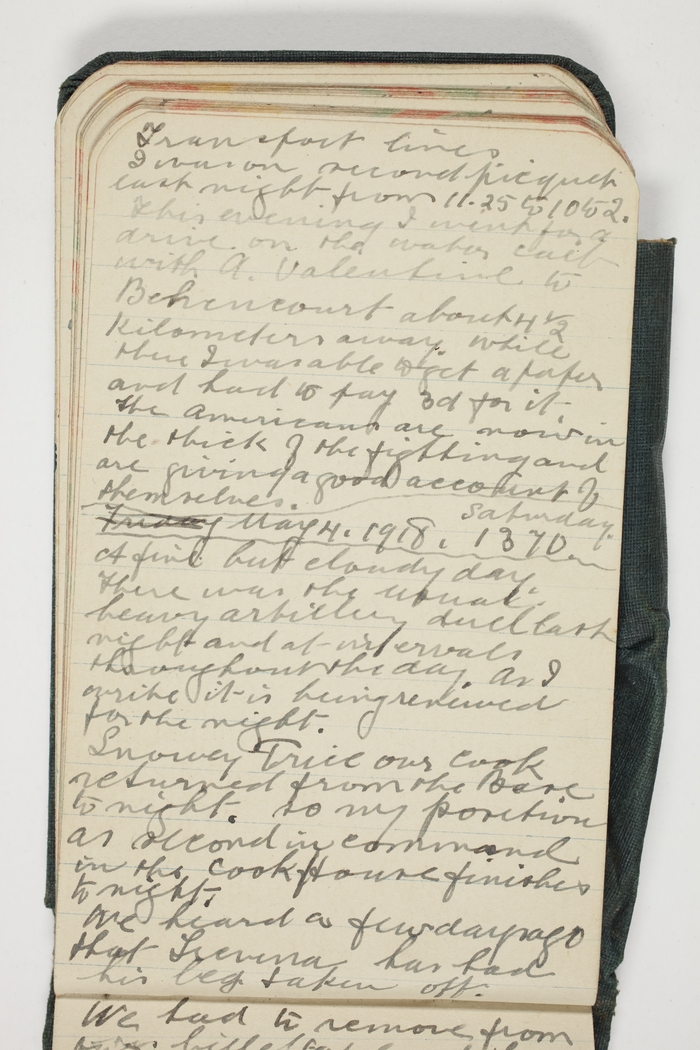 Transport lines
I was on second picquet
last night from 11.25 to 10 to 2.
This evening I went for a
drive on the water cart
with A. Valentine to
Behencourt about 4 1/2
Kilometers away. While
there I was able to get a paper
and had to pay 3d for it.
The Americans are now in
the thick of the fighting and
are giving a good account of
themselves.
Saturday
Friday May 4. 1918. 1370
A fine but cloudy day.
There was the usual
heavy artillery duel last
night and at intervals
throughout the day. As I
write it is being renewed
for the night.
Snowey Trice our cook
returned from the Base
to night. so my position
as second in command
in the cook House finishes
to night.
We heard a few days ago
that has had
his leg taken off.
We had to remove from